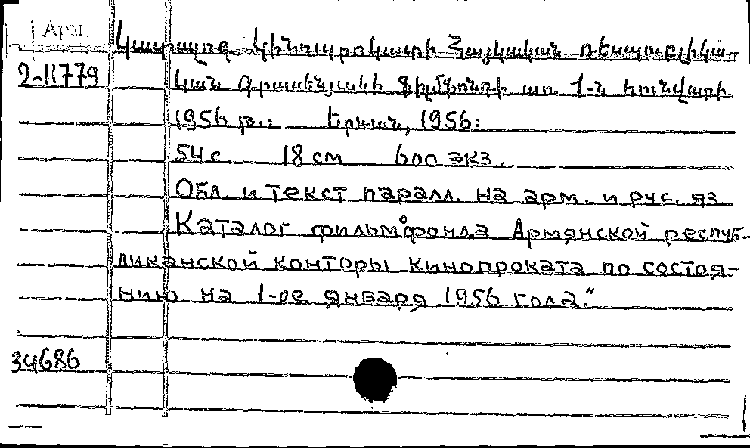 Арм.
Կատալոգ կինոպրոկատի Հայկական ռեսպուբլիկա-
2-11779
կան գրասենյակի ֆիլմֆոնդի առ 1-ն հունվարի
1956 թ.: Երևան, 1956:
54 с. 18 см 600 экз.
Обл. и текст паралл. на арм. и рус. яз.
Каталог фильмофонда Армянской респуб-
ликанской конторы кинопроката по состоя-
нию на 1-ое января 1956 года."
34686